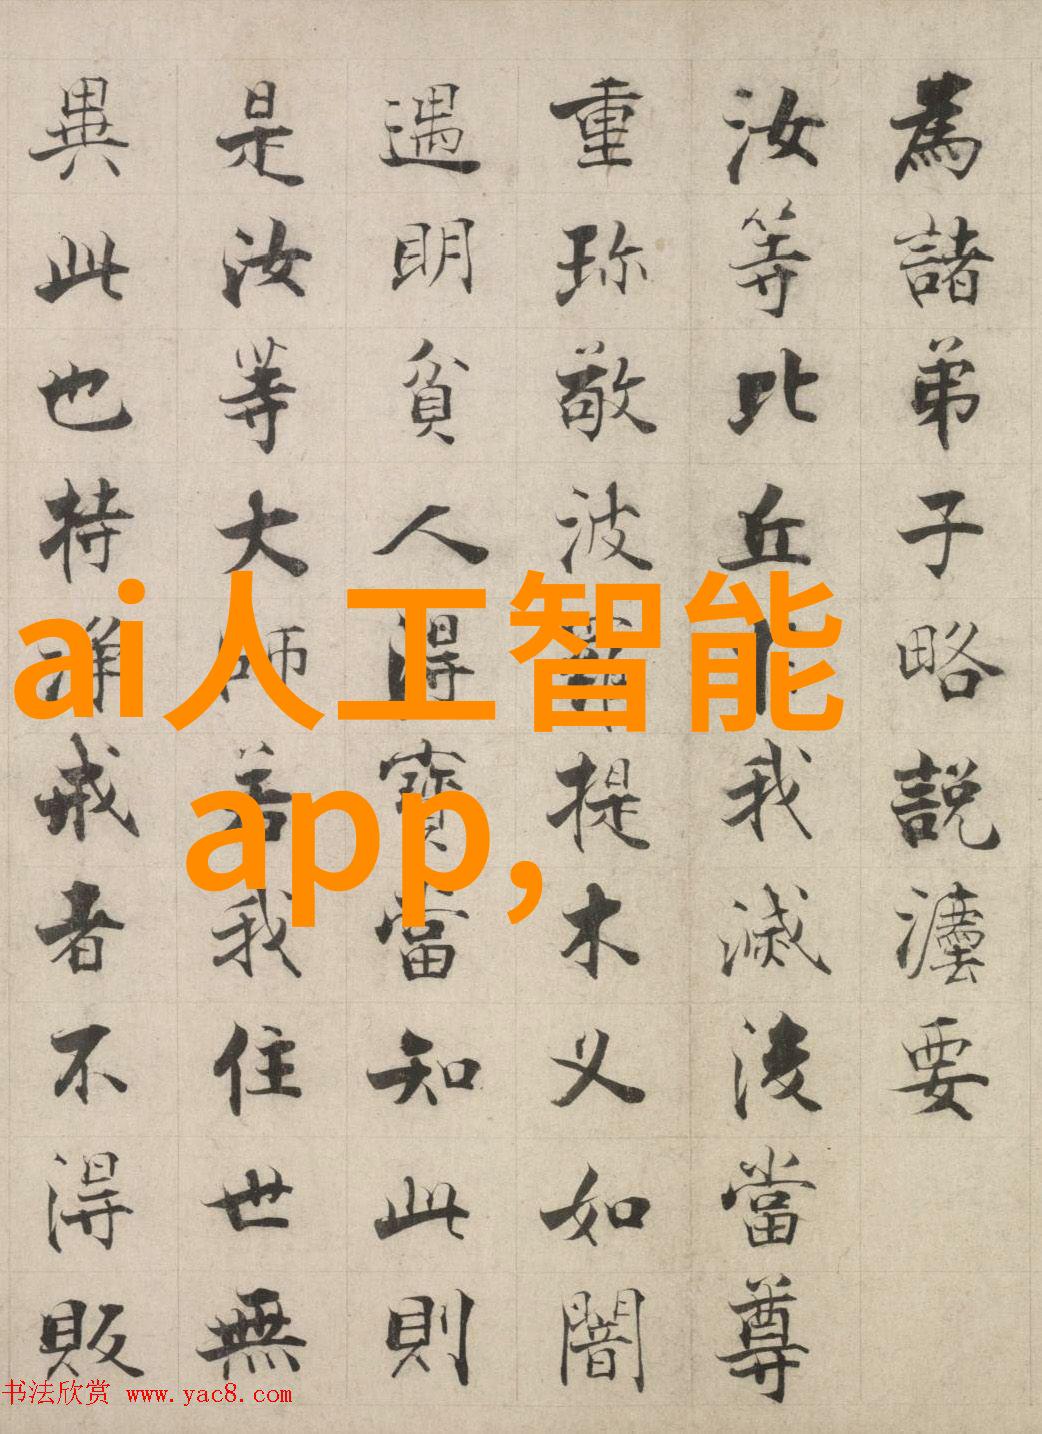 為諸弟子略説灋要
汝等比丘我滅後當尊
重珎敬波提木叉如闇
遇明貧人得寶當知此則
是汝等大師若我住世無
異此也持戒者不得販
ai人工智能
app,
书法欣赏 www.yac8.com